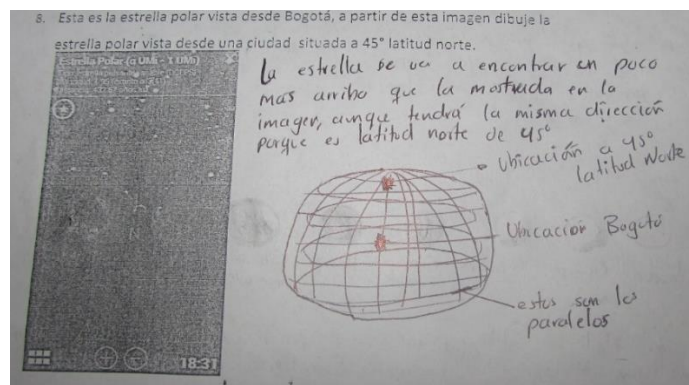 8. Esta es la estrella polar vista desde Bogotá, a partir de esta imagen dibuje la
estrella polar vista desde una ciudad situada a 45° latitud norte.
Estrella Polar (α UMi - 1 UMi)
La estrella se va a encontrar un poco
mas arriba que la mostrada en la
imagen, aunque tendrá la misma dirección
porque es latitud norte de 45°
Ubicación a 45°
latitud Norte
Ubicacion Bogotá
estos son los
paralelos
N
18:31